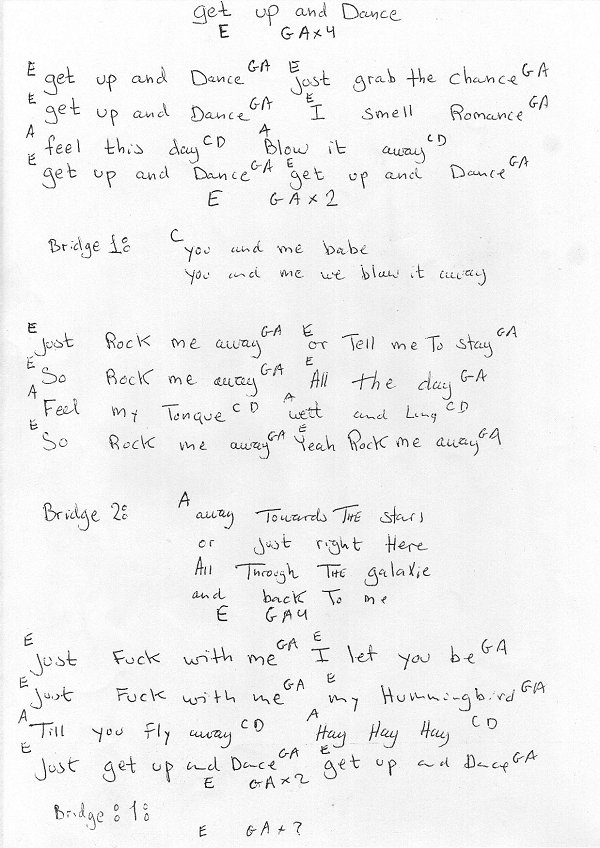 get up and Dance
E GA×4
E get up and Dance GA E just grab the chance GA
E get up and Dance GA E I smell Romance GA
A feel this day CD A Blow it away CD
E get up and Dance GA E get up and Dance GA
E GA×2
Bridge 1: C you and me babe
you and me we blow it away
E Just Rock me away GA E or Tell me To stay GA
E So Rock me away GA E All the day GA
A Feel my Tongue CD A wett and Long CD
E So Rock me away GA E Yeah Rock me away GA
Bridge 2: A away Towards THE stars
or just right Here
All Through THE galaxie
and back To me
E GA4
E Just Fuck with me GA E I let you be GA
E Just Fuck with me GA E my Hummingbird GA
A Till you fly away CD A Hay Hay Hay CD
E Just get up and Dance GA E get up and Dance GA
E GA×2
Bridge :1:
E GA×?